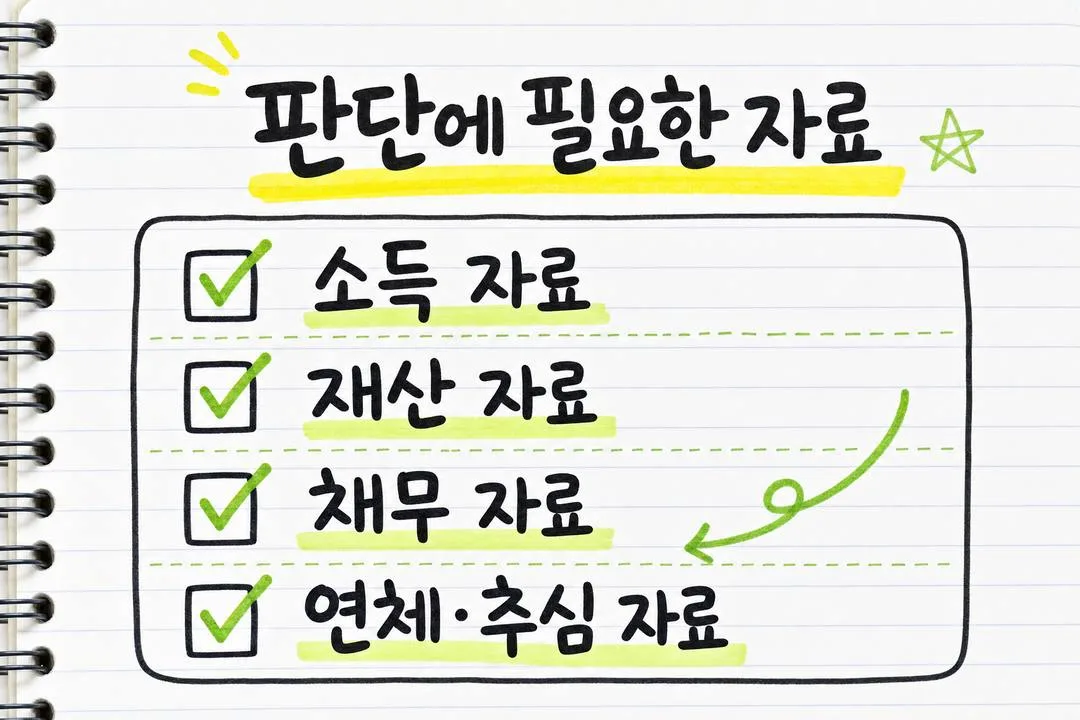 판단에 필요한 자료
소득 자료
재산 자료
채무 자료
연체·추심 자료